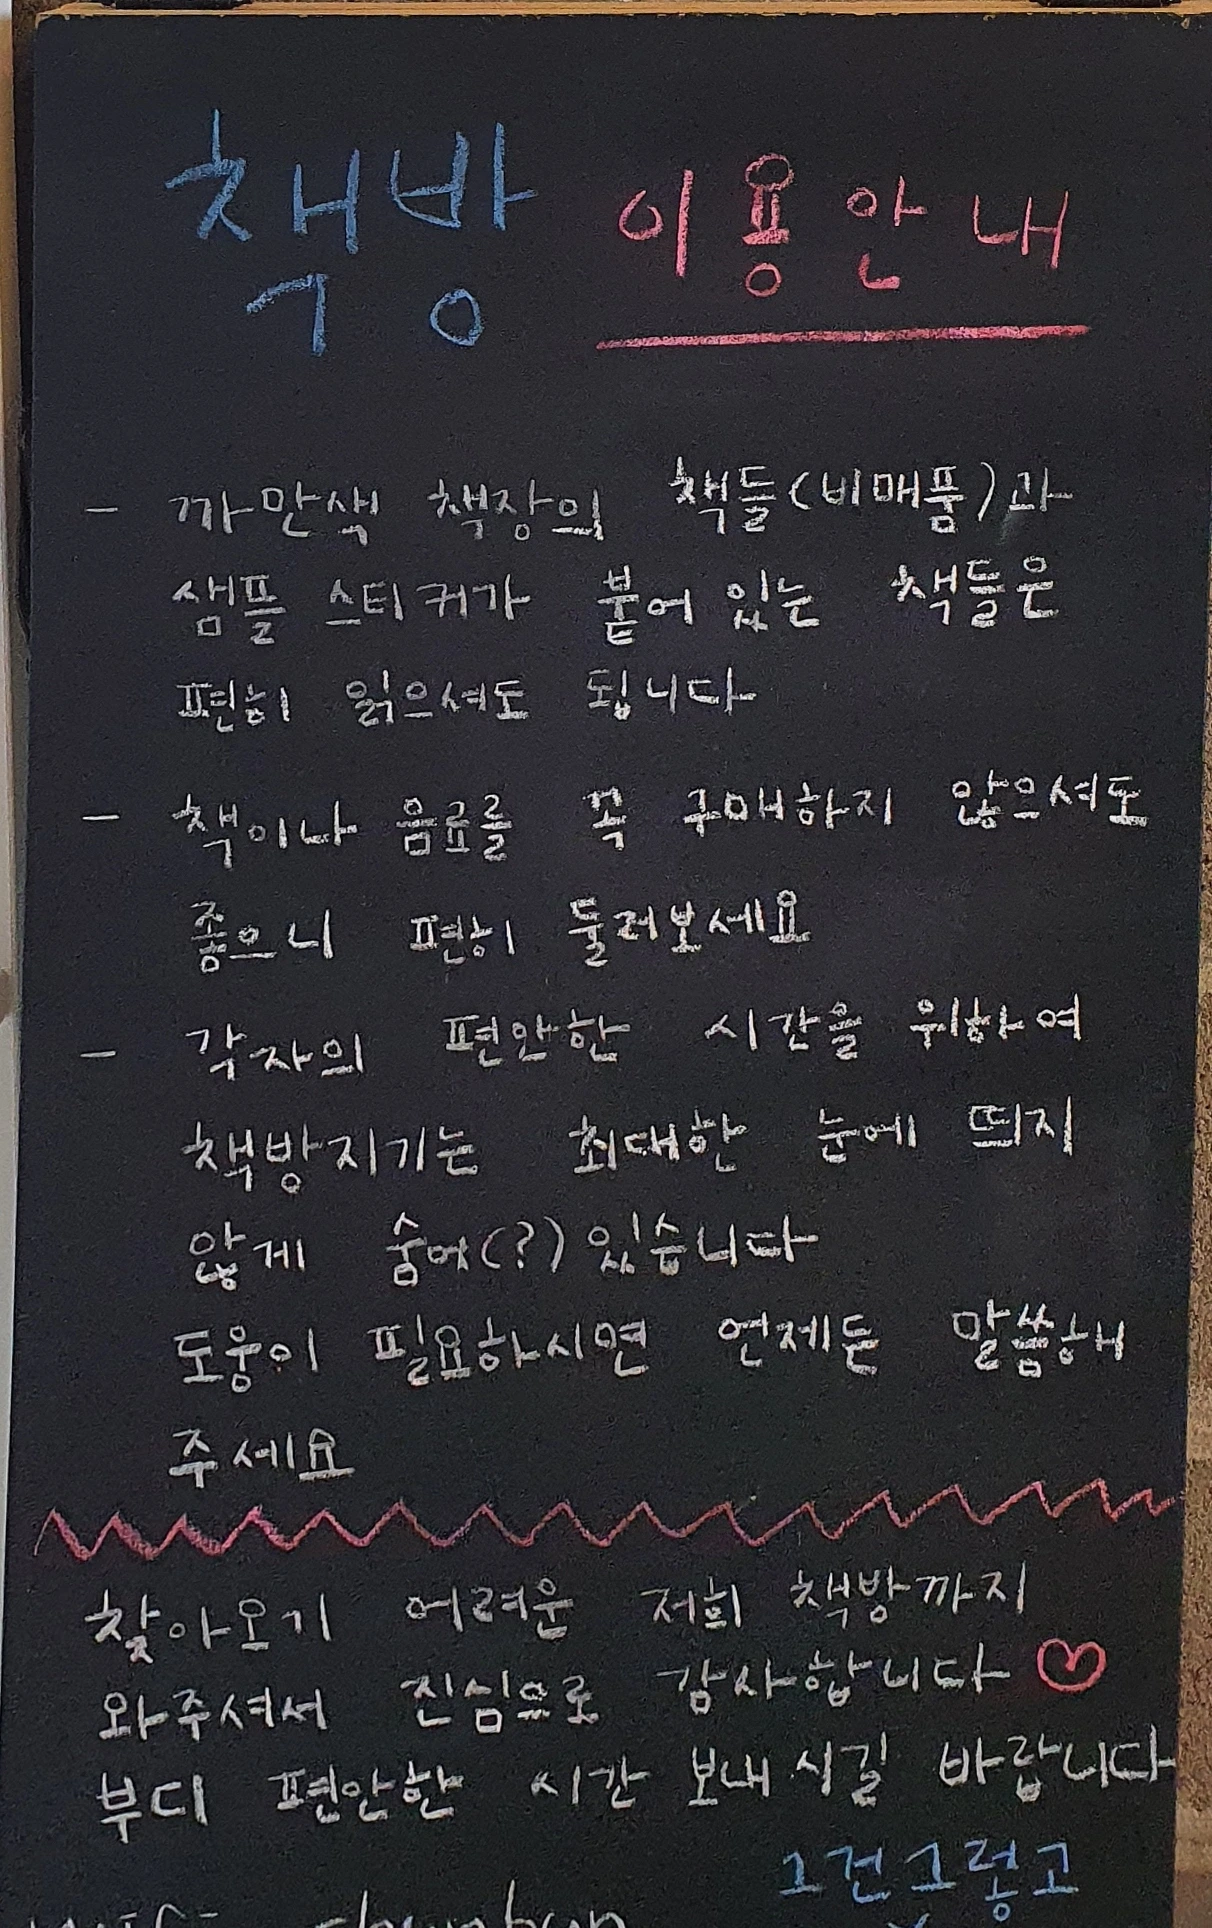 책방 이용안내
- 까만색 책장의 책들(비매품)과
샘플 스티커가 붙어 있는 책들은
편히 읽으셔도 됩니다
- 책이나 음료를 꼭 구매하지 않으셔도
좋으니 편히 둘러보세요
- 각자의 편안한 시간을 위하여
책방지기는 최대한 눈에 띄지
않게 숨어(?) 있습니다
도움이 필요하시면 언제든 말씀해
주세요
찾아오기 어려운 저희 책방까지
와주셔서 진심으로 감사합니다 ♡
부디 편안한 시간 보내시길 바랍니다
그건그렇고